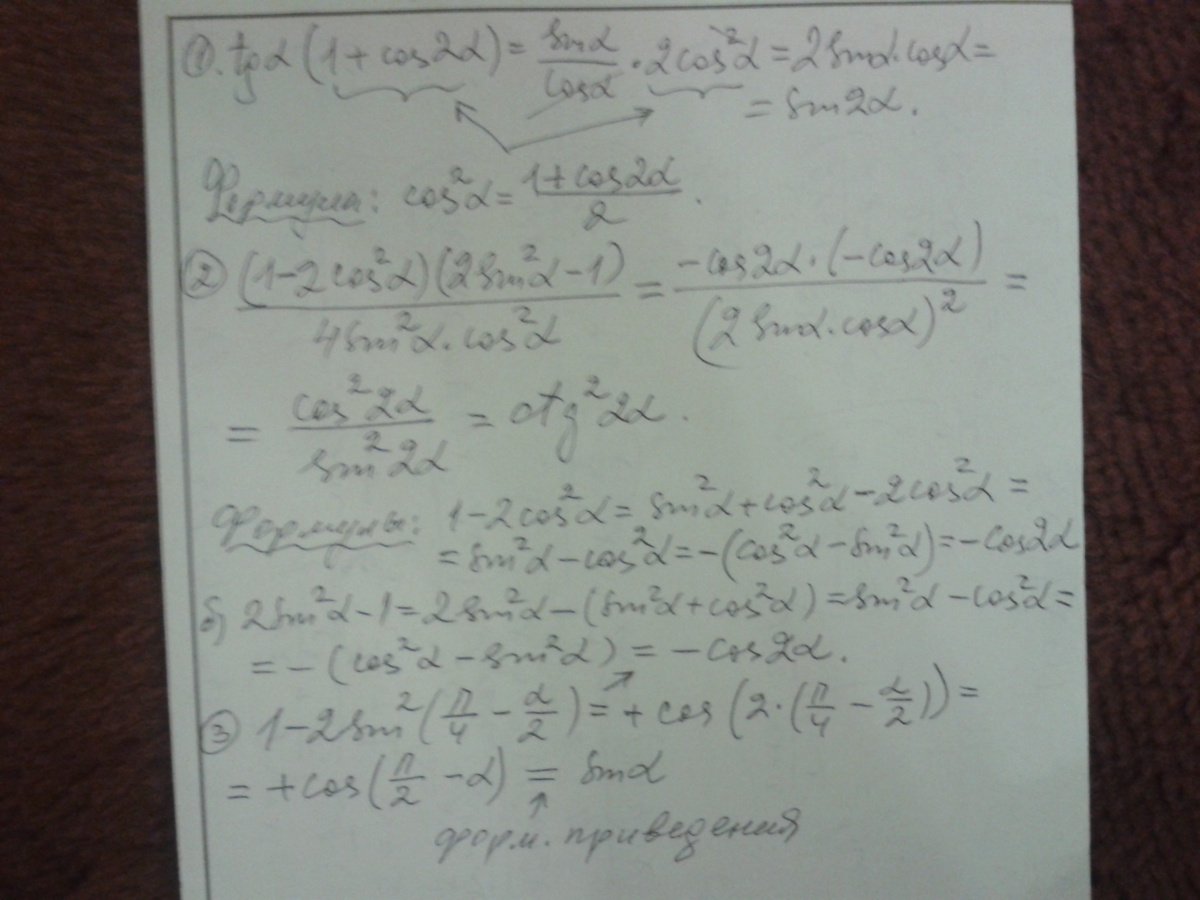 ①. tgα (1 + cos2α) = sinα/cosα · 2cos²α = 2sinα·cosα =
= sin2α.
Формула: cos²α = (1+cos2α)/2.
② (1-2cos²α)(2sin²α-1)/(4sin²α·cos²α) = -cos2α·(-cos2α)/(2sinα·cosα)² =
= cos²2α/sin²2α = ctg²2α.
Формулы: 1-2cos²α = sin²α+cos²α-2cos²α =
= sin²α-cos²α = -(cos²α-sin²α) = -cos2α
б) 2sin²α-1 = 2sin²α-(sin²α+cos²α) = sin²α-cos²α =
= -(cos²α-sin²α) = -cos2α.
③ 1-2sin²(π/4 - α/2) = +cos(2·(π/4 - α/2)) =
= +cos(π/2 - α) = sinα
форм. приведения